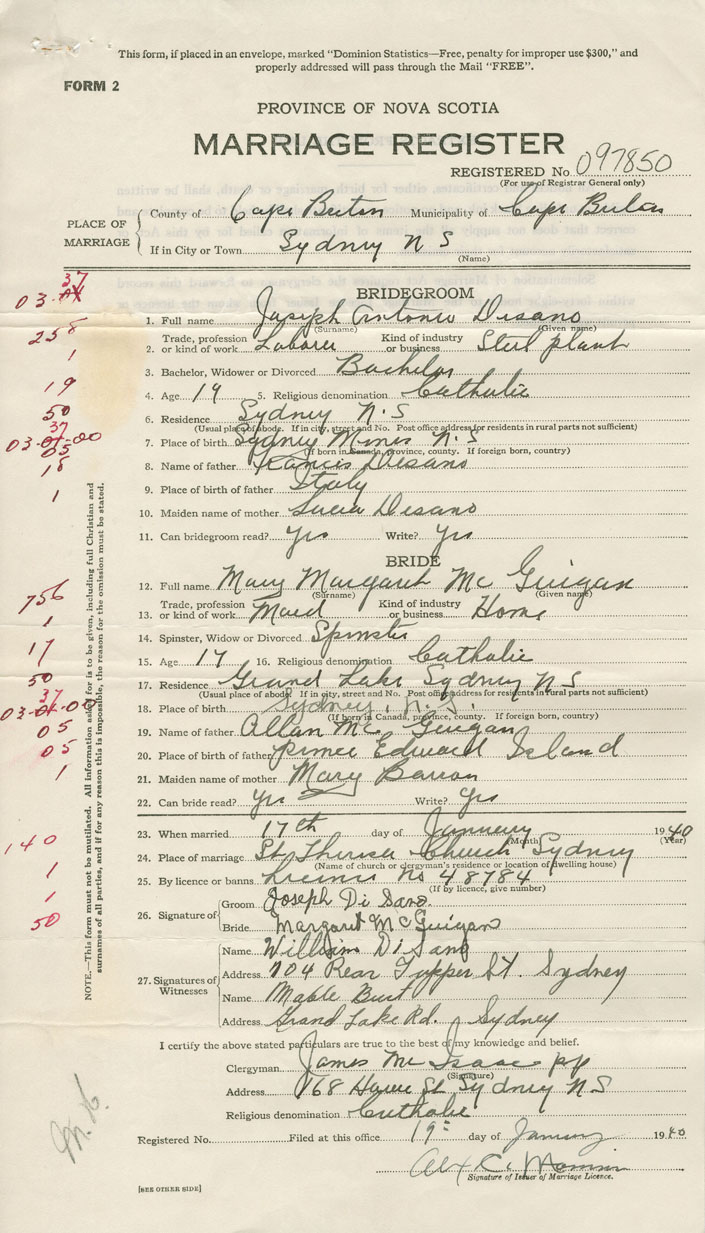 This form, if placed in an envelope, marked "Dominion Statistics—Free, penalty for improper use $300," and
properly addressed will pass through the Mail "FREE".
FORM 2
PROVINCE OF NOVA SCOTIA
MARRIAGE REGISTER
REGISTERED No. 097850
(For use of Registrar General only)
PLACE OF MARRIAGE
County of Cape Breton Municipality of Cape Breton
If in City or Town Sydney N S
(Name)
37
03-
BRIDEGROOM
1. Full name Joseph Antonio Disano
(Surname) (Given name)
258
Trade, profession Kind of industry
2. or kind of work Laborer or business Steel plant
1
3. Bachelor, Widower or Divorced Bachelor
19
4. Age 19 5. Religious denomination Catholic
50
6. Residence Sydney N.S
(Usual place of abode. If in city, street and No. Post office address for residents in rural parts not sufficient)
37
03-01-00
7. Place of birth Sydney Mines N.S
(If born in Canada, province, county. If foreign born, country)
05
18
8. Name of father Francis Disano
1
9. Place of birth of father Italy
10. Maiden name of mother Lucia Disano
11. Can bridegroom read? Yes Write? Yes
BRIDE
12. Full name Mary Margaret Mc Guigan
(Surname) (Given name)
756
Trade, profession Kind of industry
13. or kind of work Maid or business Home
1
14. Spinster, Widow or Divorced Spinster
17
15. Age 17 16. Religious denomination Catholic
50
17. Residence Grand Lake Sydney N S
(Usual place of abode. If in city, street and No. Post office address for residents in rural parts not sufficient)
37
03-01-00
18. Place of birth Sydney, N.S.
(If born in Canada, province, county. If foreign born, country)
05
19. Name of father Allan Mc Guigan
05
20. Place of birth of father Prince Edward Island
1
21. Maiden name of mother Mary Barron
22. Can bride read? Yes Write? Yes
23. When married 17th day of January 1940
(Month) (Year)
140
24. Place of marriage St. Theresa Church Sydney
(Name of church or clergyman's residence or location of dwelling house)
1
25. By licence or banns License No 48784
(If by licence, give number)
1
26. Signature of
Groom Joseph Di Sano.
50
Bride Margaret McGuigan
27. Signatures of Witnesses
Name William Di Sano
Address 104 Rear Tupper St. Sydney
Name Mable Burt
Address Grand Lake Rd. Sydney
NOTE.—This form must not be mutilated. All information asked for is to be given, including full Christian and
surnames of all parties, and if for any reason this is impossible, the reason for the omission must be stated.
I certify the above stated particulars are true to the best of my knowledge and belief.
Clergyman James Mc Isaac pp
(Signature)
Address 168 St Sydney N S
Religious denomination Catholic
Registered No. Filed at this office 19 day of January 1940
Alex C.
Signature of Issuer of Marriage Licence.
[SEE OTHER SIDE]